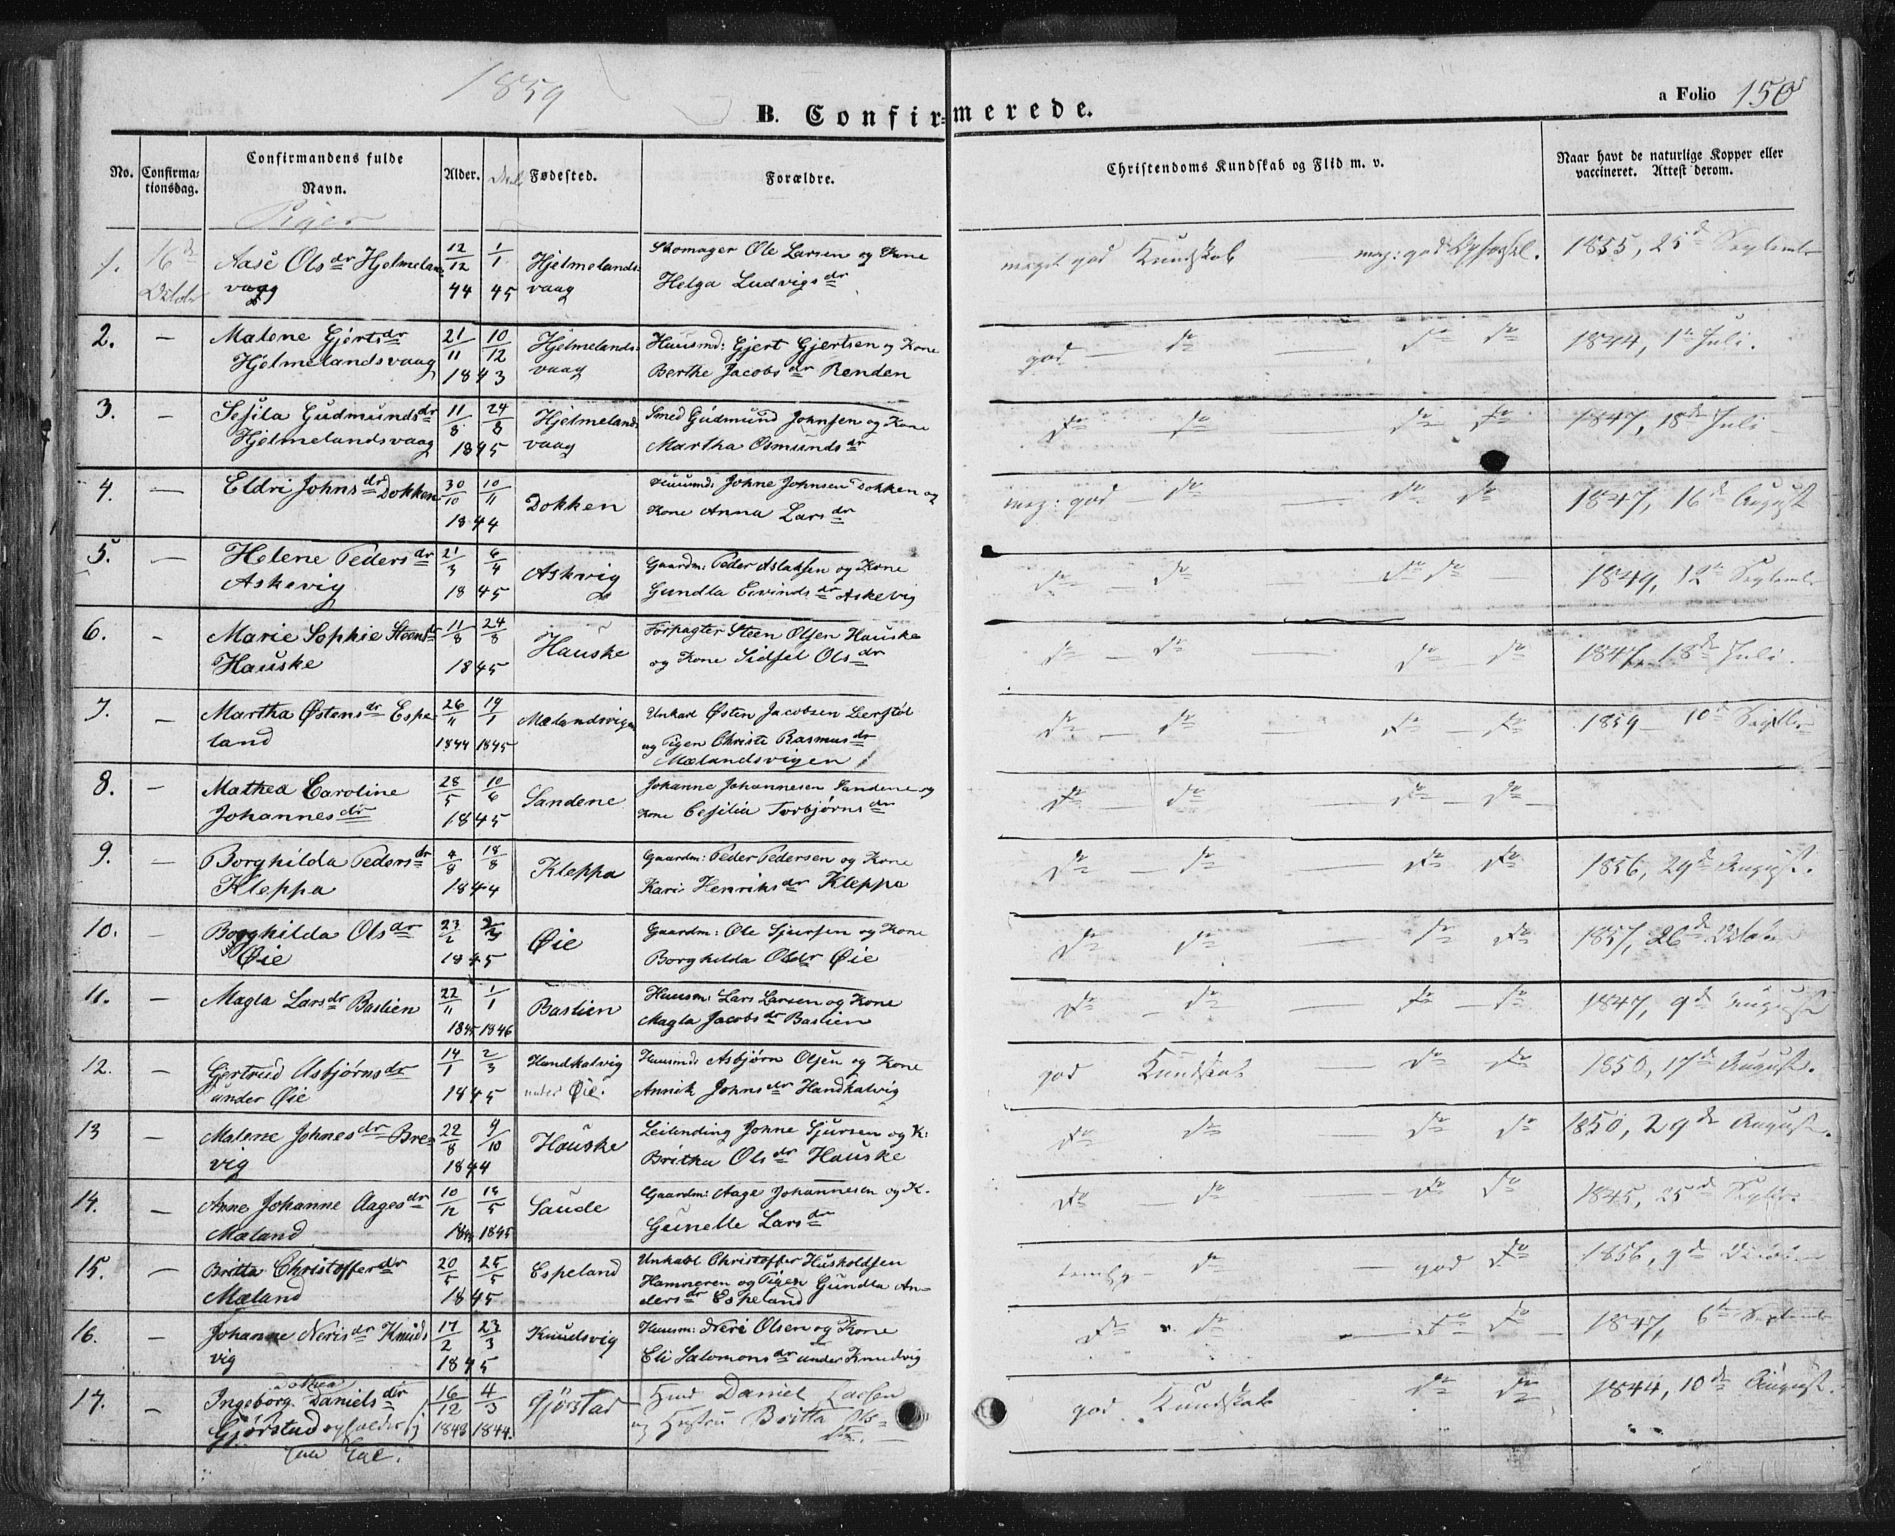 1859
a Folio 150
B. Confirmerede.
No. Confirmationsdag. Confirmandens fulde Navn. Alder. Fødested. Forældre. Christendoms Kundskab og Flid m. v. Naar havt de naturlige Kopper eller vaccineret. Attest derom.
Piger
1. 16de Aase Olsdr Hjelmelands 12/12 44 1/1 45 Hjelmelands- Skomager Ole Larsen og Kone meget god Kundskab meg: god 1855, 25d September
vaag vaag Helga Ludvigsdr
2. — Malene Gjertsdr 21/11 10/12 Hjelmelands- Huusmd: Gjert Gjertsen og Kone god — do — do do 1844, 1ste Juli.
Hjelmelandsvaag 1843 vaag Berthe Jacobsdr Renden
3. — Sesila Gudmundsdr 11/8 24/8 Hjelmelands- Smed Gudmund Johnsen og Kone do do do do 1847, 18de Juli
Hjelmelandsvaag 1845 vaag Martha Osmundsdr
4. — Eldri Johnsdr Dokken 30/10 10/11 Dokken Huusmd: Johne Johnsen Dokken og meg: god do — do do 1847, 16d August
1844 Kone Anna Larsdr
5. — Helene Pedersdr 21/3 6/4 Askvig Gaardm: Peder Aslaksen og Kone do — do do do — 1849, 12te September
Askevig 1845 Gundla Eivindsdr Askevig
6. — Marie Sophie Steensdr 11/8 24/8 Hauske Forpagter Steen Olsen Hauske do — do — do — do 1847, 18de Juli.
Hauske 1845 og Kone Sidsel Olsdr
7. — Martha Østensdr Espe- 26/11 19/1 Mælandsvigen Unkarl Østen Jacobsen Leerstøl do — do — do — do 1859 — 10d Septbr
land 1844 1845 og Pigen Christi Rasmusdr
Mælandsvigen
8. — Mathea Caroline 28/5 10/6 Sandene Johanne Johannesen Sandene og do — do — do — do —
Johannesdr 1845 Kone Cesilia Torbjørnsdr
9. — Borghilda Pedersdr 4/8 18/8 Kleppa Gaardm: Peder Pedersen og Kone do — do — do do 1856, 29d August.
Kleppa 1844 Kari Henriksdr Kleppa
10. — Borghilda Olsdr 23/2 Øie Gaardm: Ole Sjursen og Kone do do — do do 1857, 26d
Øie 1845 Borghilda Olsdr Øie
11. — Magla Larsdr Bastien 22/11 1/1 Bastien Huusm: Lars Larsen og Kone do — do — do do 1847, 9d August
1845 1846 Magla Jacobsdr Bastien
12. — Gjertrud Asbjørnsdr 14/1 2/3 Handkalvig Huusmd: Asbjørn Olsen og Kone god Kundskab — do do 1850, 17d August.
under Øie 1845 under Øie. Annik Johnsdr Handkalvig
13 — Malene Johnesdr Bre- 22/8 9/10 Hauske Leilending Johne Sjursen og K: do do — do do 1850, 29de August.
vig 1844 Britha Olsdr Hauske
14. — Anne Johanne Aagesdr 10/12 18/5 Saude Gaardm: Aage Johannesen og K. do — do — do do 1845, 25d Septbr.
Mæland 1845 Gunelle Larsdr
15. — Britta Christofferdr 20/5 25/5 Espeland Unkarl Christoffer Husholdsen do — god do 1856, 9d
Mæland 1845 Hamneren og Pigen Gundla An-
dersdr Espeland
16. — Johanne Nerisdr Knuds- 17/2 23/3 Knudsvig Huusm: Neri Olsen og Kone do do — do do — 1847, 6te September
vig 1845 Eli Salomonsdr under Knudvig
17. — Ingeborg Danielsdr 16/12 4/3 Gjørstad Daniel god Kundskab do do 1844, 10de August.
Gjørstad 1843 1844. og Hustru Britta Ols-
dtr.